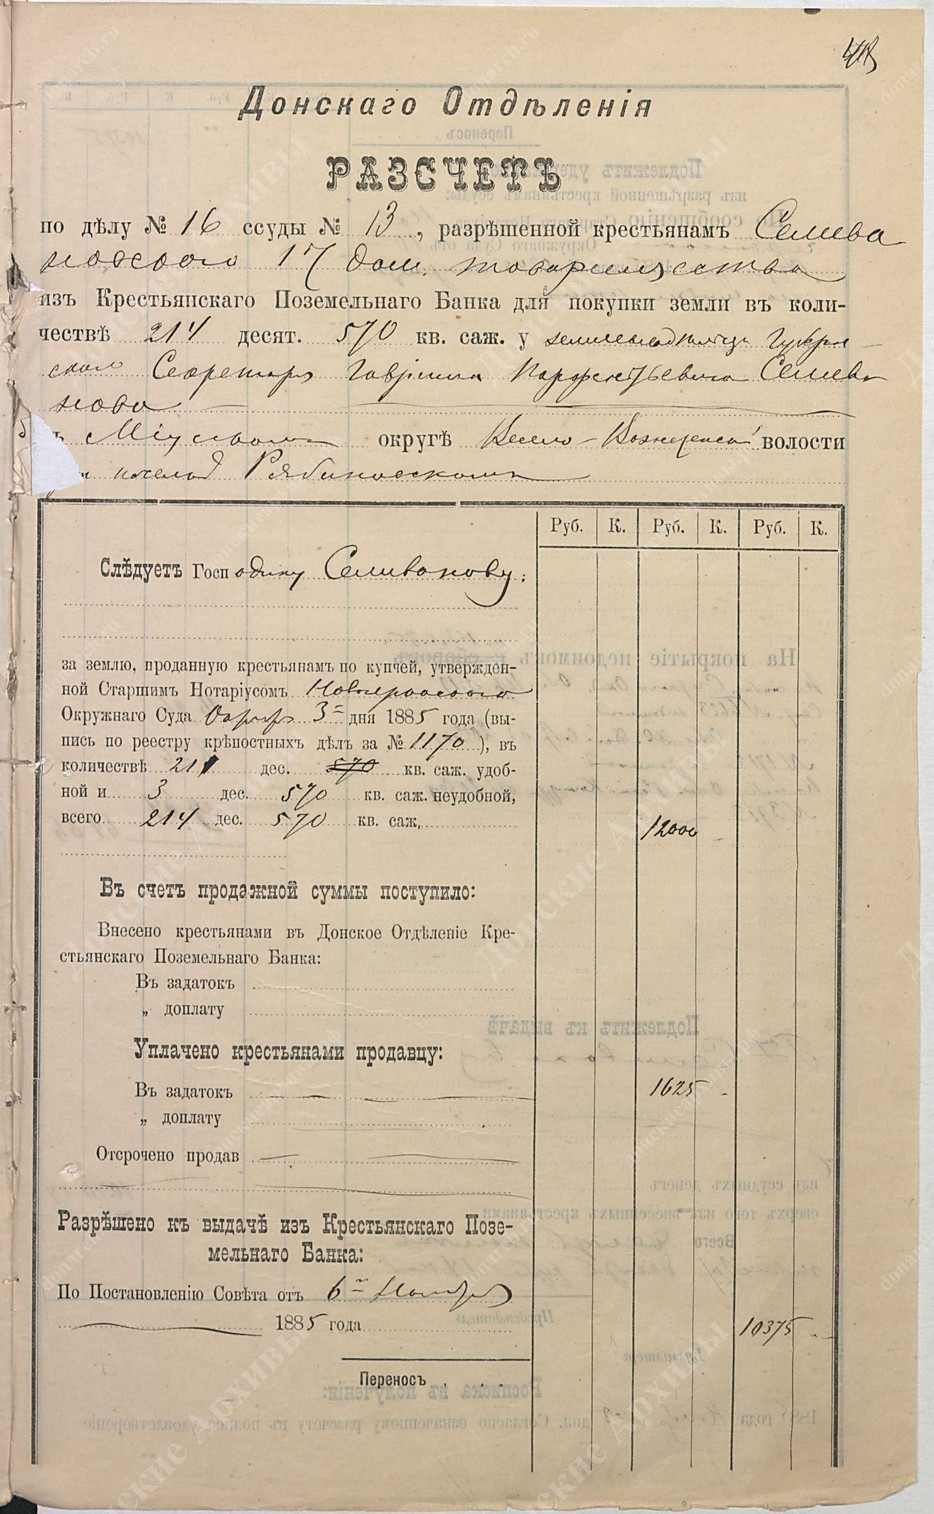 Донскаго Отдѣленія
РАЗСЧЕТЪ
по дѣлу № 16 ссуды № 13, разрѣшенной крестьянамъ Селива
новскаго 17 дом. товарищества
изъ Крестьянскаго Поземельнаго Банка для покупки земли въ коли-
чествѣ 214 десят. 570 кв. саж. у землевладѣльца Губерн-
скаго Секретаря Гавріила Парфентьевича Селива
нова
Міусскомъ округѣ Весело-Вознесенской волости
Рябиновскомъ
Руб. К. Руб. К. Руб. К.
Слѣдуетъ Господину Селиванову:
за землю, проданную крестьянамъ по купчей, утвержден-
ной Старшимъ Нотаріусомъ
Окружнаго Суда 3 дня 1885 года (вы-
пись по реестру крѣпостныхъ дѣлъ за № 1170), въ
количествѣ 211 дес. 570 кв. саж. удоб-
ной и 3 дес. 570 кв. саж. неудобной,
всего 214 дес. 570 кв. саж. 12000 -
Въ счетъ продажной суммы поступило:
Внесено крестьянами въ Донское Отдѣленіе Кре-
стьянскаго Поземельнаго Банка:
Въ задатокъ
„ доплату
Уплачено крестьянами продавцу:
Въ задатокъ 1625 -
„ доплату
Отсрочено продав
Разрѣшено къ выдачѣ изъ Крестьянскаго Позе-
мельнаго Банка:
По Постановленію Совѣта отъ 6 Ноября
1885 года 10375 -
Переносъ . . .